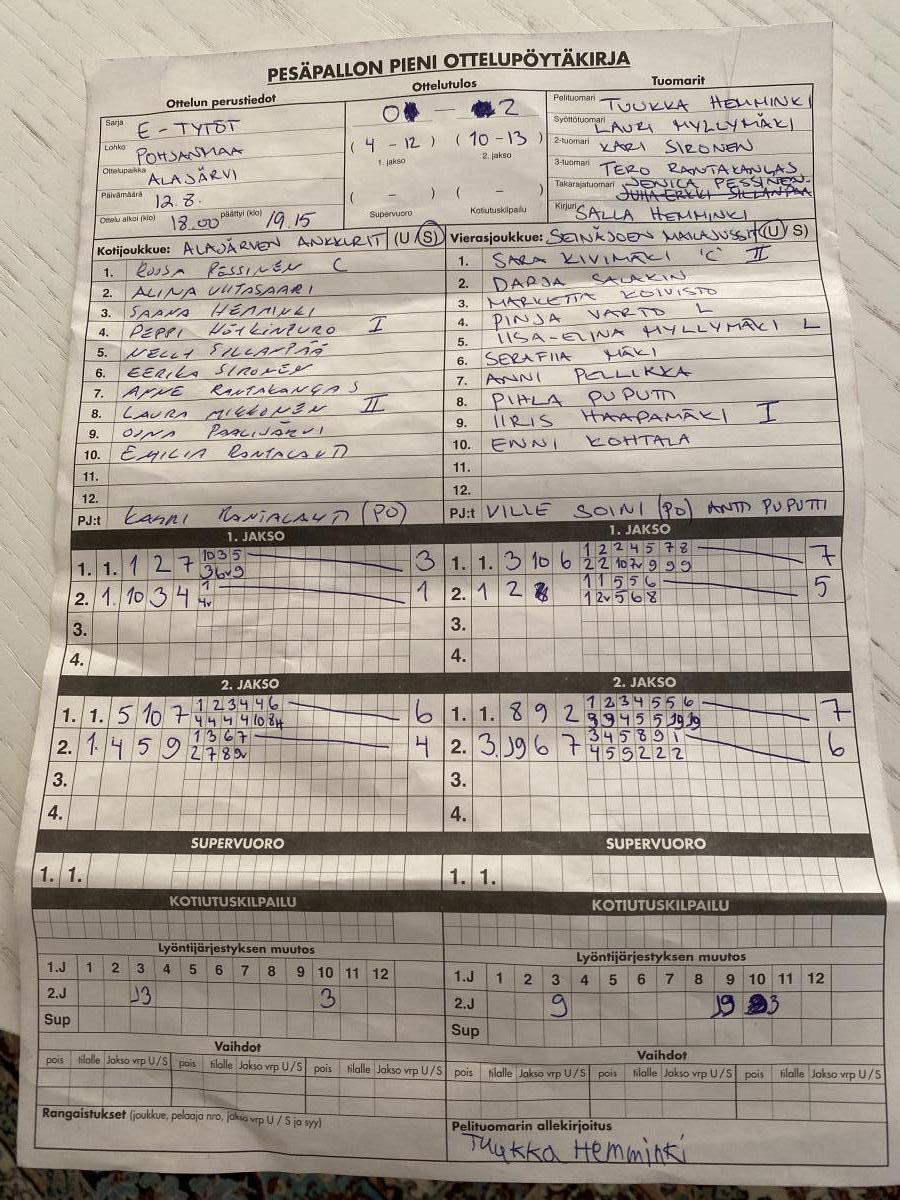 PESÄPALLON PIENI OTTELUPÖYTÄKIRJA
Ottelun perustiedot
Sarja E-TYTÖT
Lohko POHJANMAA
Ottelupaikka ALAJÄRVI
Päivämäärä 12.8.
Ottelu alkoi (klo) 18.00 päättyi (klo) 19.15
Ottelutulos
0 - 2
(4-12) (10-13)
1. jakso 2. jakso
( - ) ( - )
Supervuoro Kotiutuskilpailu
Tuomarit
Pelituomari TUUKKA HEMMINKI
Syöttötuomari LAURI MYLLYMÄKI
2-tuomari KARI SIRONEN
3-tuomari TERO RANTAKANGAS
Takarajatuomari JENICA PESSINEN
JUHA-ERKKI SILLANPÄÄ
Kirjuri SALLA HEMMINKI
Kotijoukkue: ALAJÄRVEN ANKKURIT (U (S)
1. ROOSA PESSINEN C
2. ALINA VIITASAARI
3. SAANA HEMMINKI
4. PEPPI I
5. NELLY SILLANPÄÄ
6. EERIKA SIRONEN
7. ANNE RANTAKANGAS
8. LAURA MIKKONEN II
9. OONA PAALIJÄRVI
10. EMILIA RANTALAHTI
11.
12.
PJ:t RANTALAHTI (PO)
Vierasjoukkue: SEINÄJOEN MAILAJUSSIT (U) S)
1. SARA KIVIMÄKI 'C' II
2. DARJA SALAKIN
3. MARKETTA KOIVISTO
4. PINJA VARTO L
5. IISA-ELINA MYLLYMÄKI L
6. SERAFIIA MÄKI
7. ANNI PELLIKKA
8. PIHLA PUPUTTI
9. IIRIS HAAPAMÄKI I
10. ENNI KOHTALA
11.
12.
PJ:t VILLE SOINI (PO) ANTTI PUPUTTI
1. JAKSO
1. 1. 1 2 7 10 3 5 3
3 6v 9
2. 1. 10 3 4 1 1
4v
3.
4.
1. JAKSO
1. 1. 3 10 6 1 2 2 4 5 7 8 7
2 2 10 7v 9 9 9
2. 1 2 1 1 5 5 6 5
1 2v 5 6 8
3.
4.
2. JAKSO
1. 1. 5 10 7 1 2 3 4 4 6 6
4 4 4 4 10 8
2. 1. 4 5 9 1 3 6 7 4
2 7 8 9v
3.
4.
2. JAKSO
1. 1. 8 9 2 1 2 3 4 5 5 6 7
9 9 4 5 5 J9 J9
2. 3. J9 6 7 3 4 5 8 9 1 6
4 5 9 2 2 2
3.
4.
SUPERVUORO
1. 1.
SUPERVUORO
1. 1.
KOTIUTUSKILPAILU
KOTIUTUSKILPAILU
Lyöntijärjestyksen muutos
1.J 1 2 3 4 5 6 7 8 9 10 11 12
2.J J3 3
Sup
Lyöntijärjestyksen muutos
1.J 1 2 3 4 5 6 7 8 9 10 11 12
2.J 9 J9 3
Sup
Vaihdot
pois tilalle Jakso vrp U/S pois tilalle Jakso vrp U/S pois tilalle Jakso vrp U/S
Vaihdot
pois tilalle Jakso vrp U/S pois tilalle Jakso vrp U/S pois tilalle Jakso vrp U/S
Rangaistukset (joukkue, pelaaja nro, jakso vrp U / S ja syy)
Pelituomarin allekirjoitus
Tuukka Hemminki